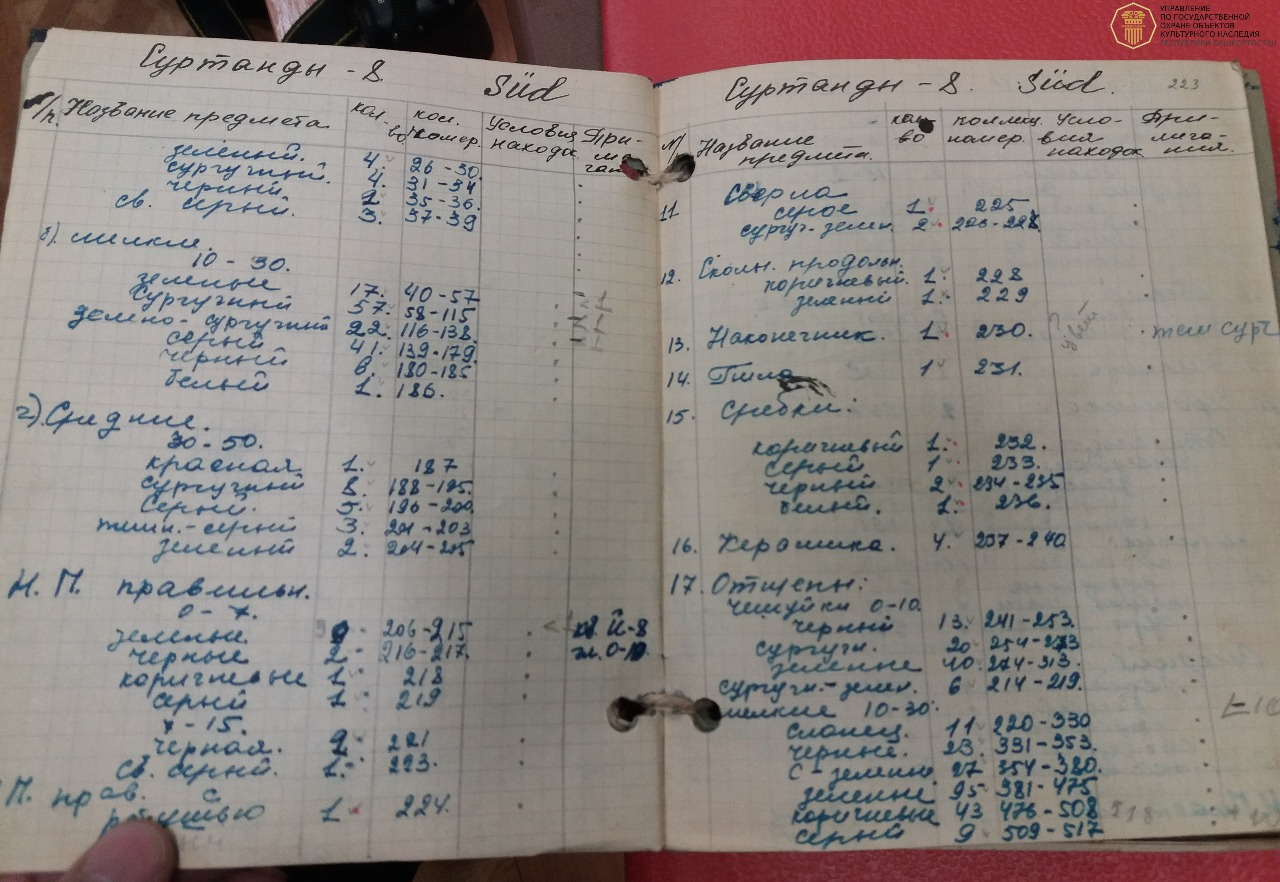 УПРАВЛЕНИЕ
ПО ГОСУДАРСТВЕННОЙ
ОХРАНЕ ОБЪЕКТОВ
КУЛЬТУРНОГО НАСЛЕДИЯ
РЕСПУБЛИКИ БАШКОРТОСТАН
Суртанды - 8. Süd
Название предмета кол. во кол. номер. Условия находок При-
зеленый. 4. 26-30.
сургучный. 4. 31-34
черный. 2 35-36.
св. серый. 3. 37-39
мелкие.
10-30.
зеленые 17. 40-57
Сургучный 57. 58-115
зелено-сургучный 22. 116-138.
серый 41. 139-179.
черный 6. 180-185
белый 1. 186.
Средние.
30-50.
красная 1. 187
сургучный 8. 188-195.
Серый. 5. 196-200.
темн.-серый 3. 201-203
зеленый 2. 204-205
Н. П. правильн.
0-7.
зеленые 206-215
черные 2. 216-217.
коричневые 1 218
серый 1. 219
7-15.
черная. 2. 221
св. серый. 1. 223.
П. прав. с
1 224.
Суртанды - 8. Süd. 223
Название предмета. кол-во коллекц. номер. Усло-вия находок При-
11 Сверла
серое 1. 225
сургуч-зелен. 2.
12. Сколы. продольн.
коричневый 1. 228
зеленый 1. 229
13. Наконечник. 1. 230. тем сург
14. Пила 1 231.
15. Скребки:
коричневый 1. 232.
серый 1 233.
черный 2. 234-235
белый. 1. 236.
16. Керамика. 4. 237-240
17. Отщепы:
чешуйки 0-10.
черный 13. 241-253.
сургучн. 20 254-273
зеленые 40. 274-313.
сургучн.-зелен. 6 214-219.
мелкие 10-30.
сланец. 11 220-330
черные. 23. 331-353.
с-зелены 27 354-380.
зеленые 95. 381-475
коричневые 43 476-508 518
серый 9 509-517